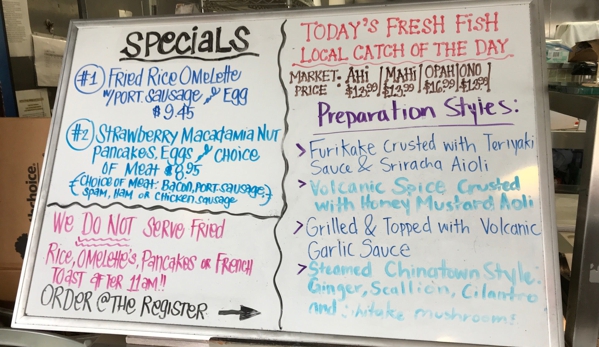 SPECIALS
#1 FRIED RICE OMELETTE
W/PORT. SAUSAGE & EGG
$9.45
#2 STRAWBERRY MACADAMIA NUT
PANCAKES, EGGS & CHOICE
OF MEAT $8.95
(CHOICE OF MEAT: BACON, PORT. SAUSAGE,
SPAM, HAM OR CHICKEN SAUSAGE)
WE DO NOT SERVE FRIED
RICE, OMELETTE'S, PANCAKES OR FRENCH
TOAST AFTER 11AM!!
ORDER @ THE REGISTER →
TODAY'S FRESH FISH
LOCAL CATCH OF THE DAY
MARKET: AHI | MAHI | OPAH | ONO
PRICE: $13.99 | $13.99 | $16.99 |
Preparation Styles:
> Furikake Crusted with Teriyaki
Sauce & Sriracha Aioli
> Volcanic Spice Crusted
with Honey Mustard Aoli
> Grilled & Topped with Volcanic
Garlic Sauce
> Steamed Chinatown Style.
Ginger, Scallion, Cilantro
and shitake mushrooms
choice.